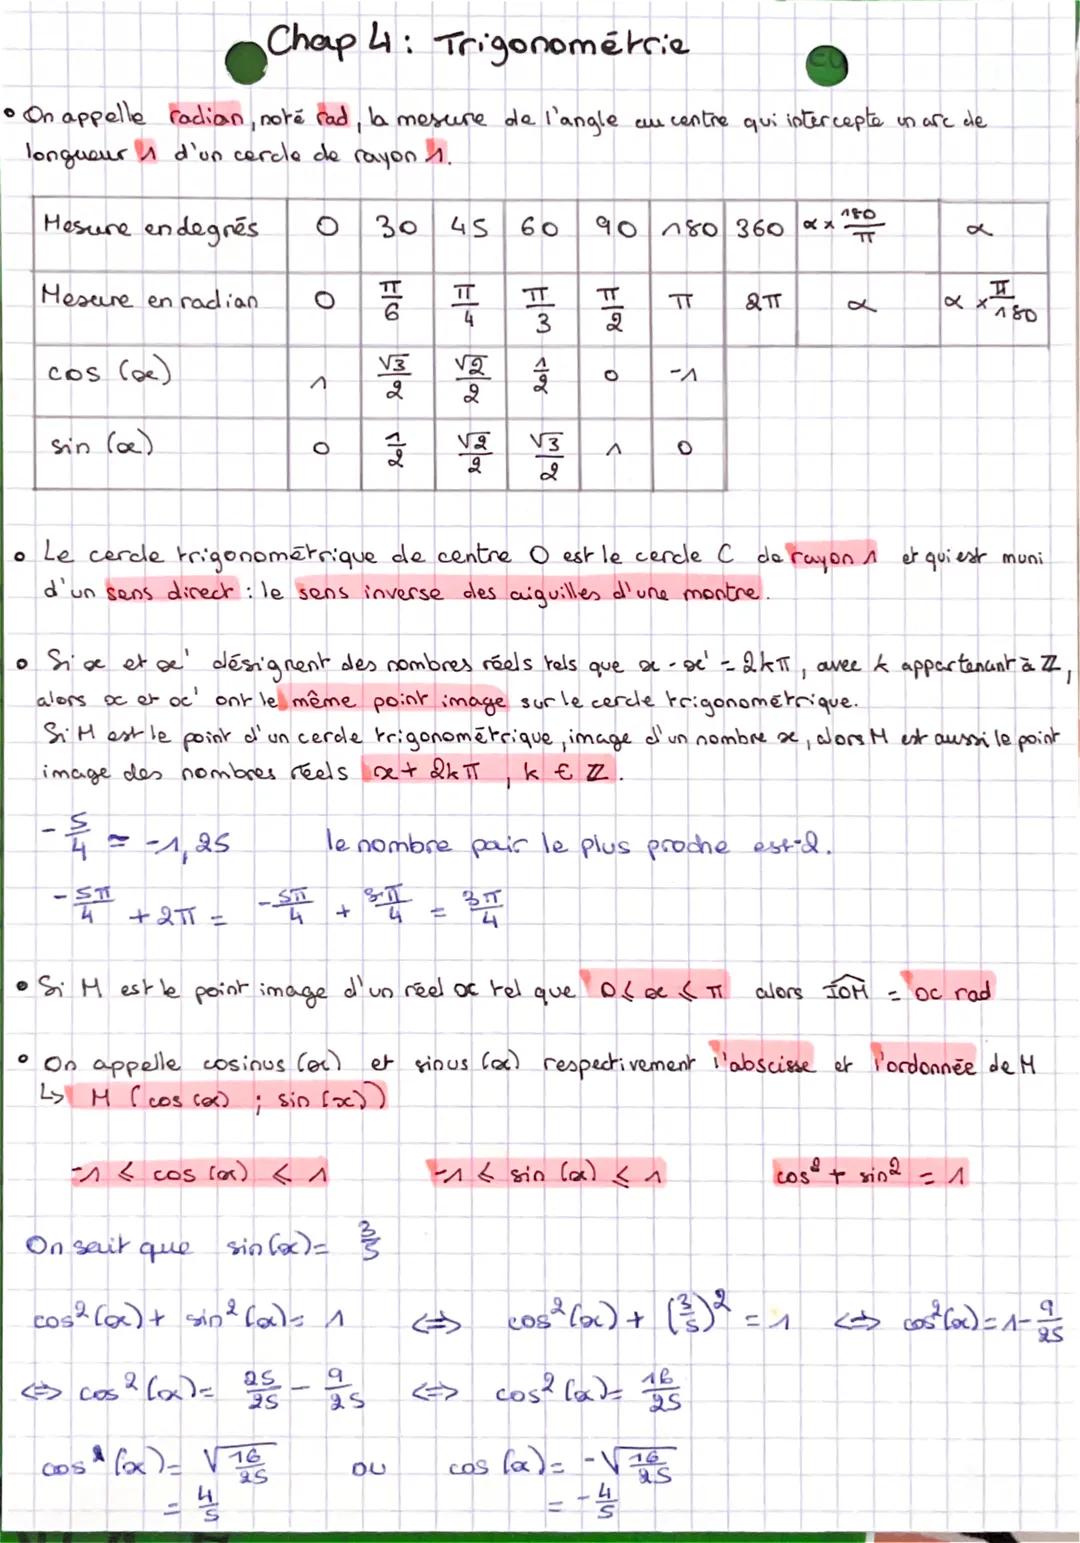 Chap 4 : Trigonométrie
• On appelle radian, noté rad, la mesure de l'angle au centre qui intercepte un arc de
longueur 1 d'un cercle de rayon 1.
Mesure en degrés 0 30 45 60 90 180 360 α × 180/π α
Mesure en radian 0 π/6 π/4 π/3 π/2 π 2π α α × π/180
cos (x) 1 √3/2 √2/2 1/2 0 -1
sin (x) 0 1/2 √2/2 √3/2 1 0
• Le cercle trigonométrique de centre O est le cercle C de rayon 1 et qui est muni
d'un sens direct : le sens inverse des aiguilles d'une montre.
• Si x et x' désignent des nombres réels tels que x - x' = 2kπ, avec k appartenant à ℤ,
alors x et x' ont le même point image sur le cercle trigonométrique.
Si M est le point d'un cercle trigonométrique, image d'un nombre x, alors M est aussi le point
image des nombres réels x + 2kπ, k ∈ ℤ.
-5/4 = -1,25 le nombre pair le plus proche est -2.
-5π/4 + 2π = -5π/4 + 8π/4 = 3π/4
• Si M est le point image d'un réel x tel que 0 ≤ x ≤ π alors IOM = x rad
• On appelle cosinus (x) et sinus (x) respectivement l'abscisse et l'ordonnée de M
↳ M (cos (x) ; sin (x))
-1 ≤ cos (x) ≤ 1 -1 ≤ sin (x) ≤ 1 cos² + sin² = 1
On sait que sin (x) = 3/5
cos² (x) + sin² (x) = 1 ⟺ cos² (x) + (3/5)² = 1 ⟺ cos² (x) = 1 - 9/25
⟺ cos² (x) = 25/25 - 9/25 ⟺ cos² (x) = 16/25
cos (x) = √16/25 ou cos (x) = -√16/25
= 4/5 = -4/5